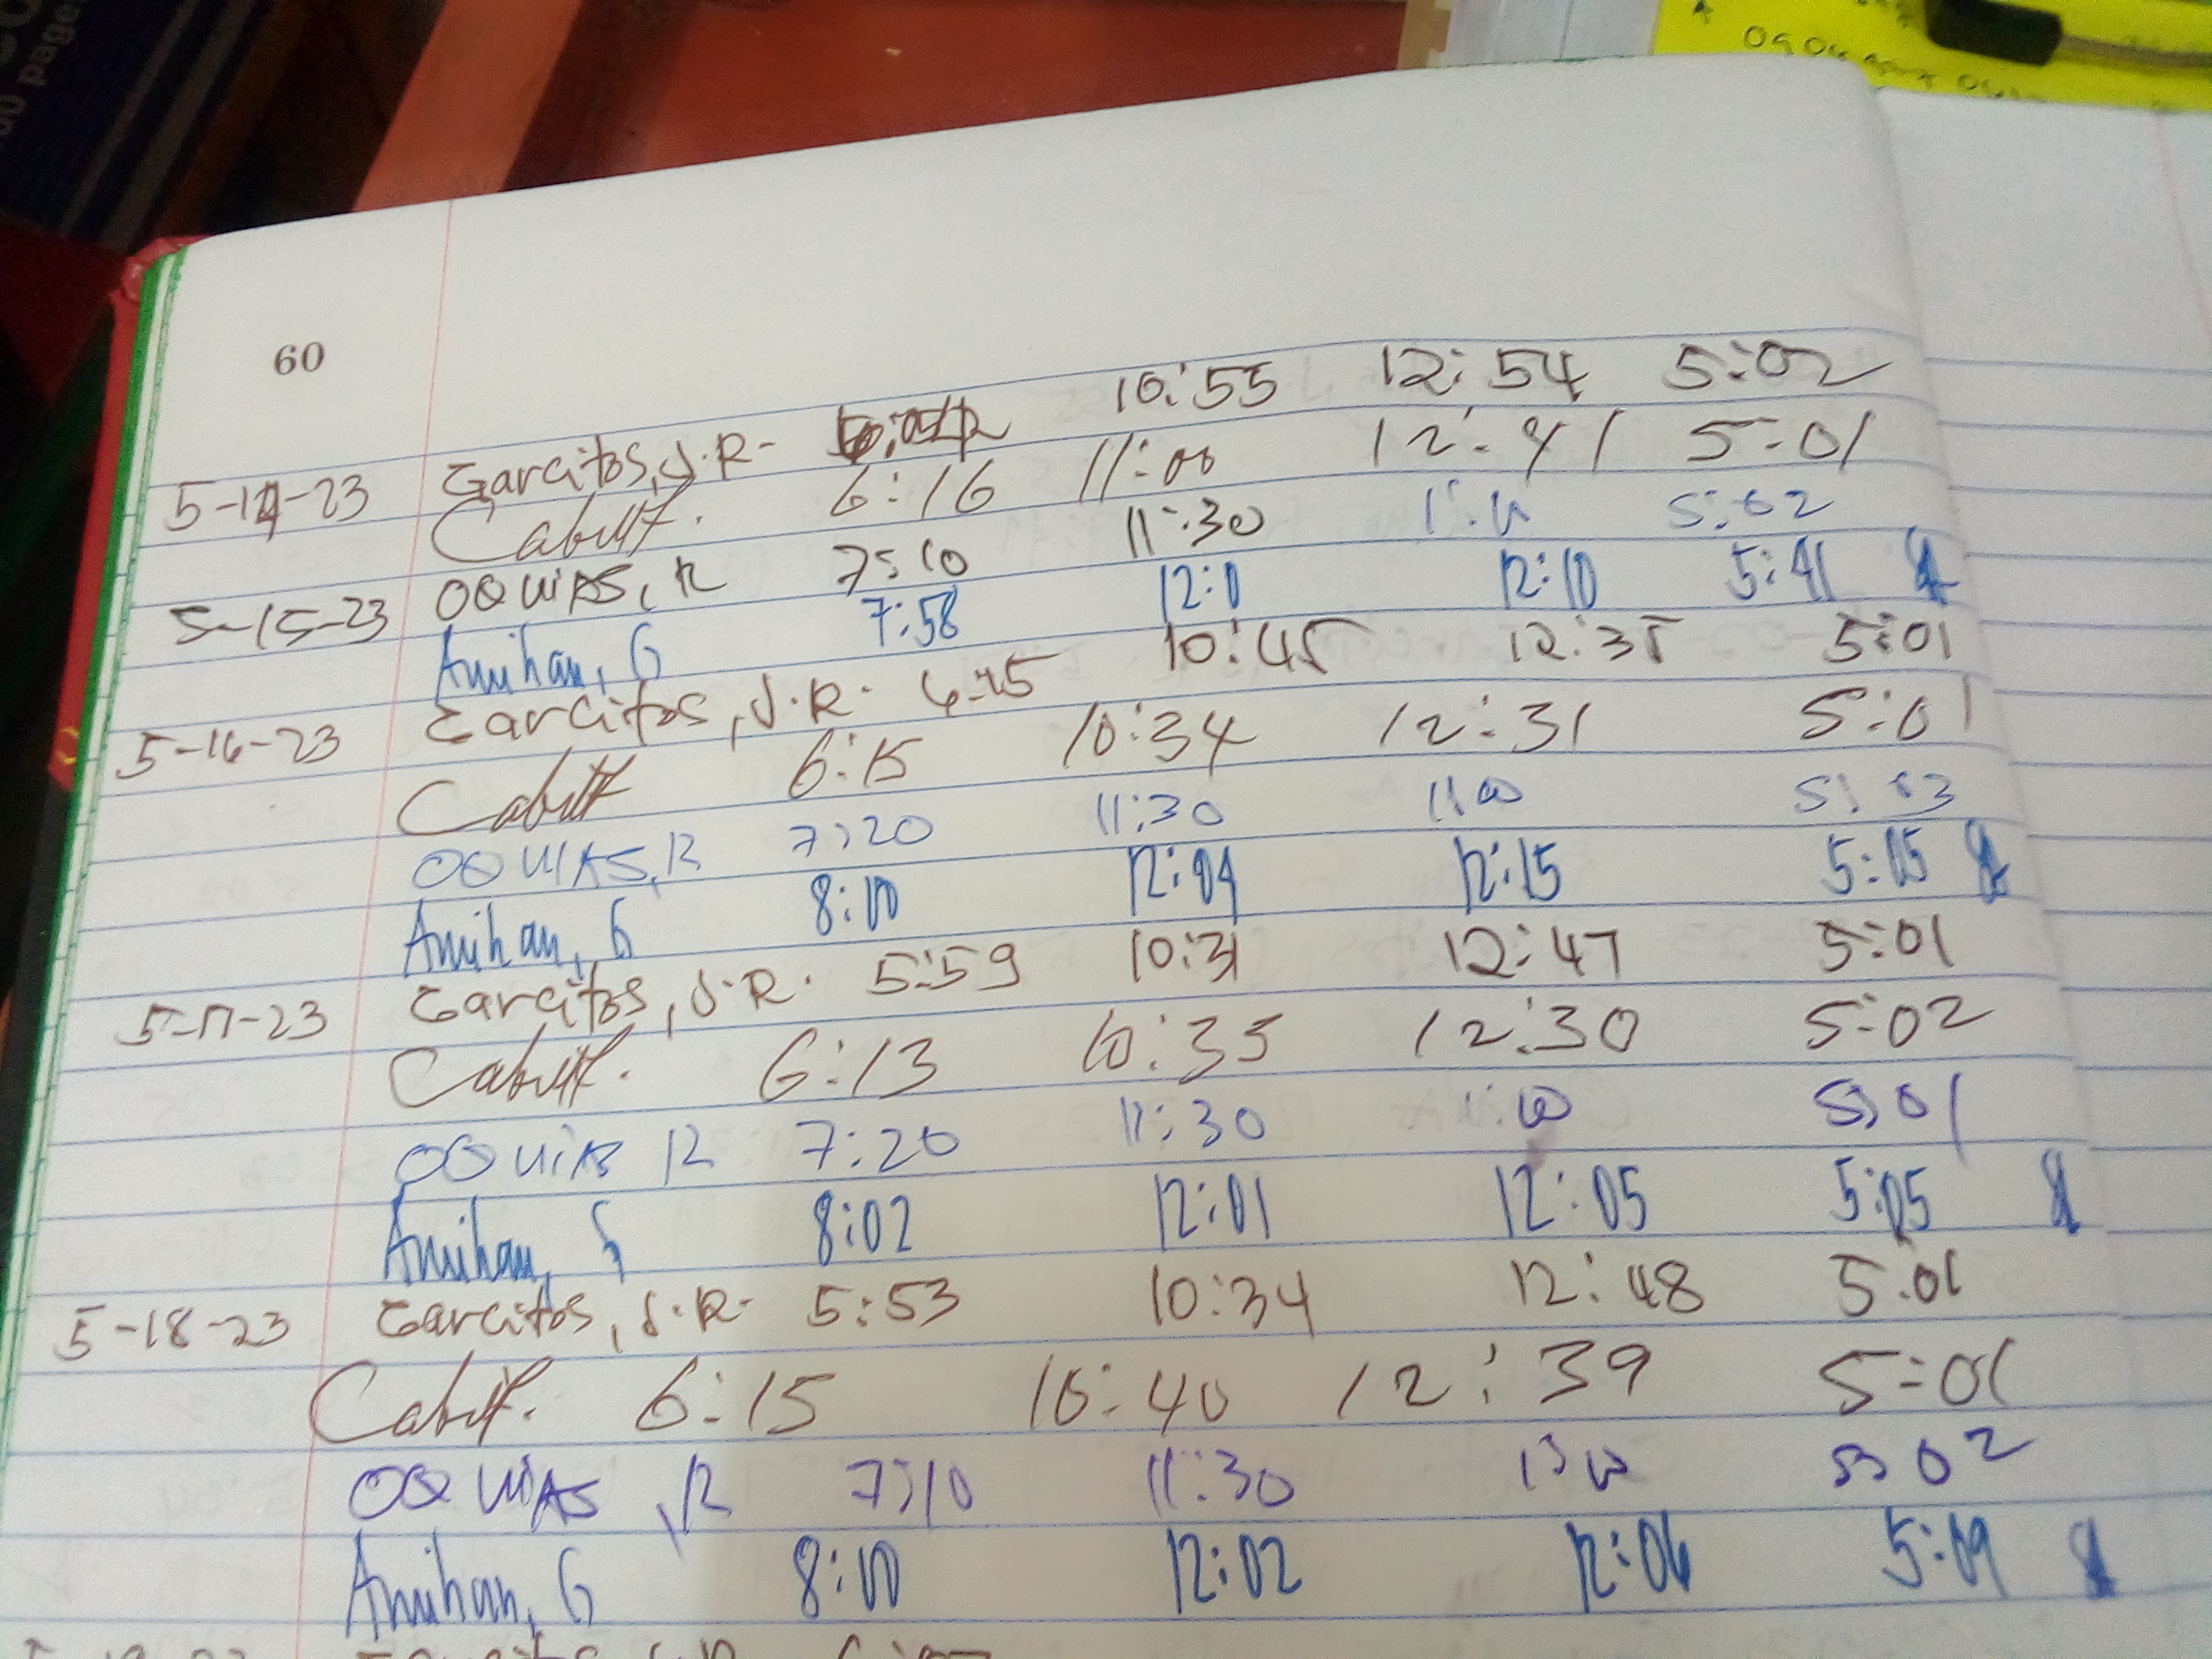 60
5-14-23 Garcitos, J.R- 10:55 12:54 5:02
6:16 11:00 12:41 5:01
5-15-23 OQUIAS, R 7:10 11:30 1:00 5:02
Amihan, G 7:58 12:01 12:10 5:41
5-16-23 Garcitos, J.R. 10:45 12:35 5:01
6:15 10:34 12:31 5:01
OQUIAS, R 7:20 11:30 1:00 5:03
Amihan, G 8:00 12:04 12:15 5:15
5-17-23 Garcitos, J.R. 5:59 10:31 12:47 5:01
6:13 10:35 12:30 5:02
OQUIAS R 7:20 11:30 1:00 5:01
Amihan, G 8:02 12:01 12:05 5:05
5-18-23 Garcitos, J.R. 5:53 10:34 12:48 5:01
6:15 10:40 12:39 5:01
OQUIAS, R 7:10 11:30 1:00 5:02
Amihan, G 8:00 12:02 12:06 5:09